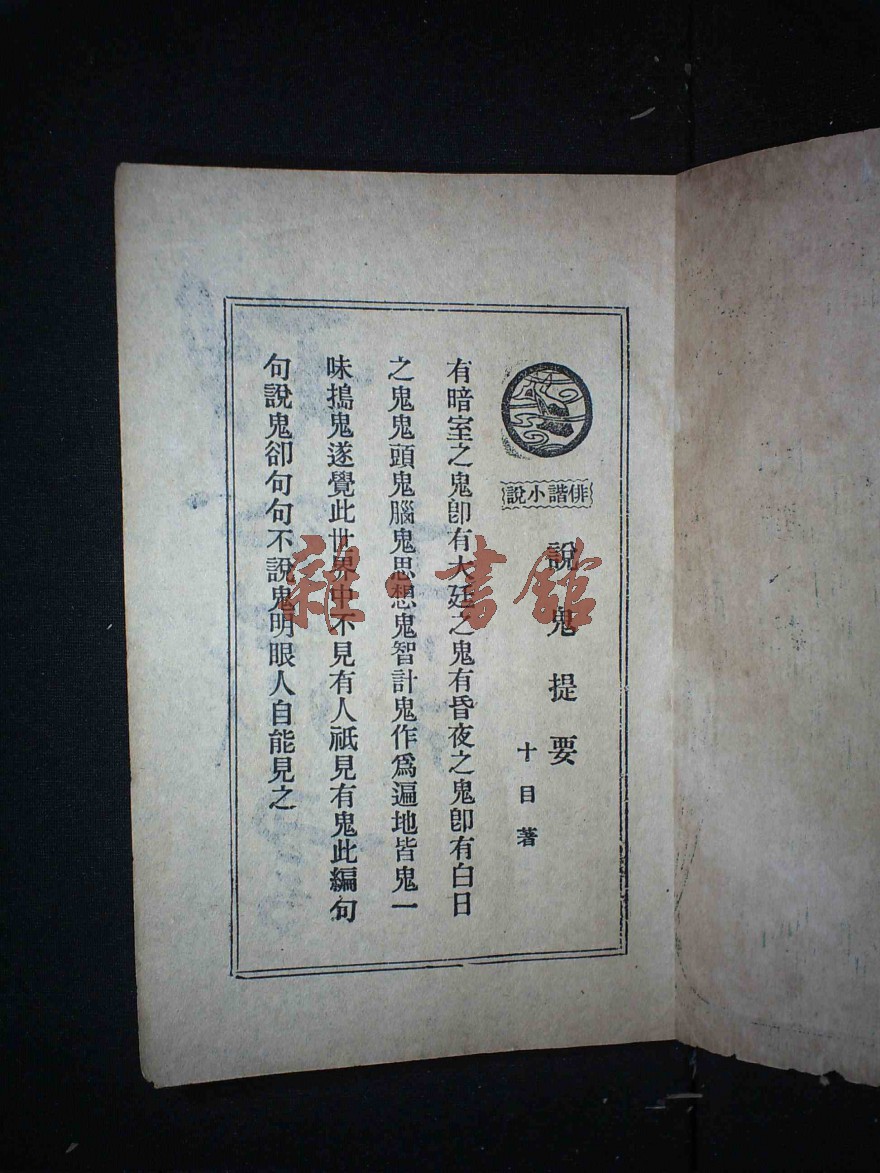 俳諧小說
說鬼提要
十目著
有暗室之鬼卽有大廷之鬼有昏夜之鬼卽有白日
之鬼鬼頭鬼腦鬼思想鬼智計鬼作爲遍地皆鬼一
味搗鬼遂覺此世界中不見有人祇見有鬼此編句
句說鬼卻句句不說鬼明眼人自能見之
雜·書館